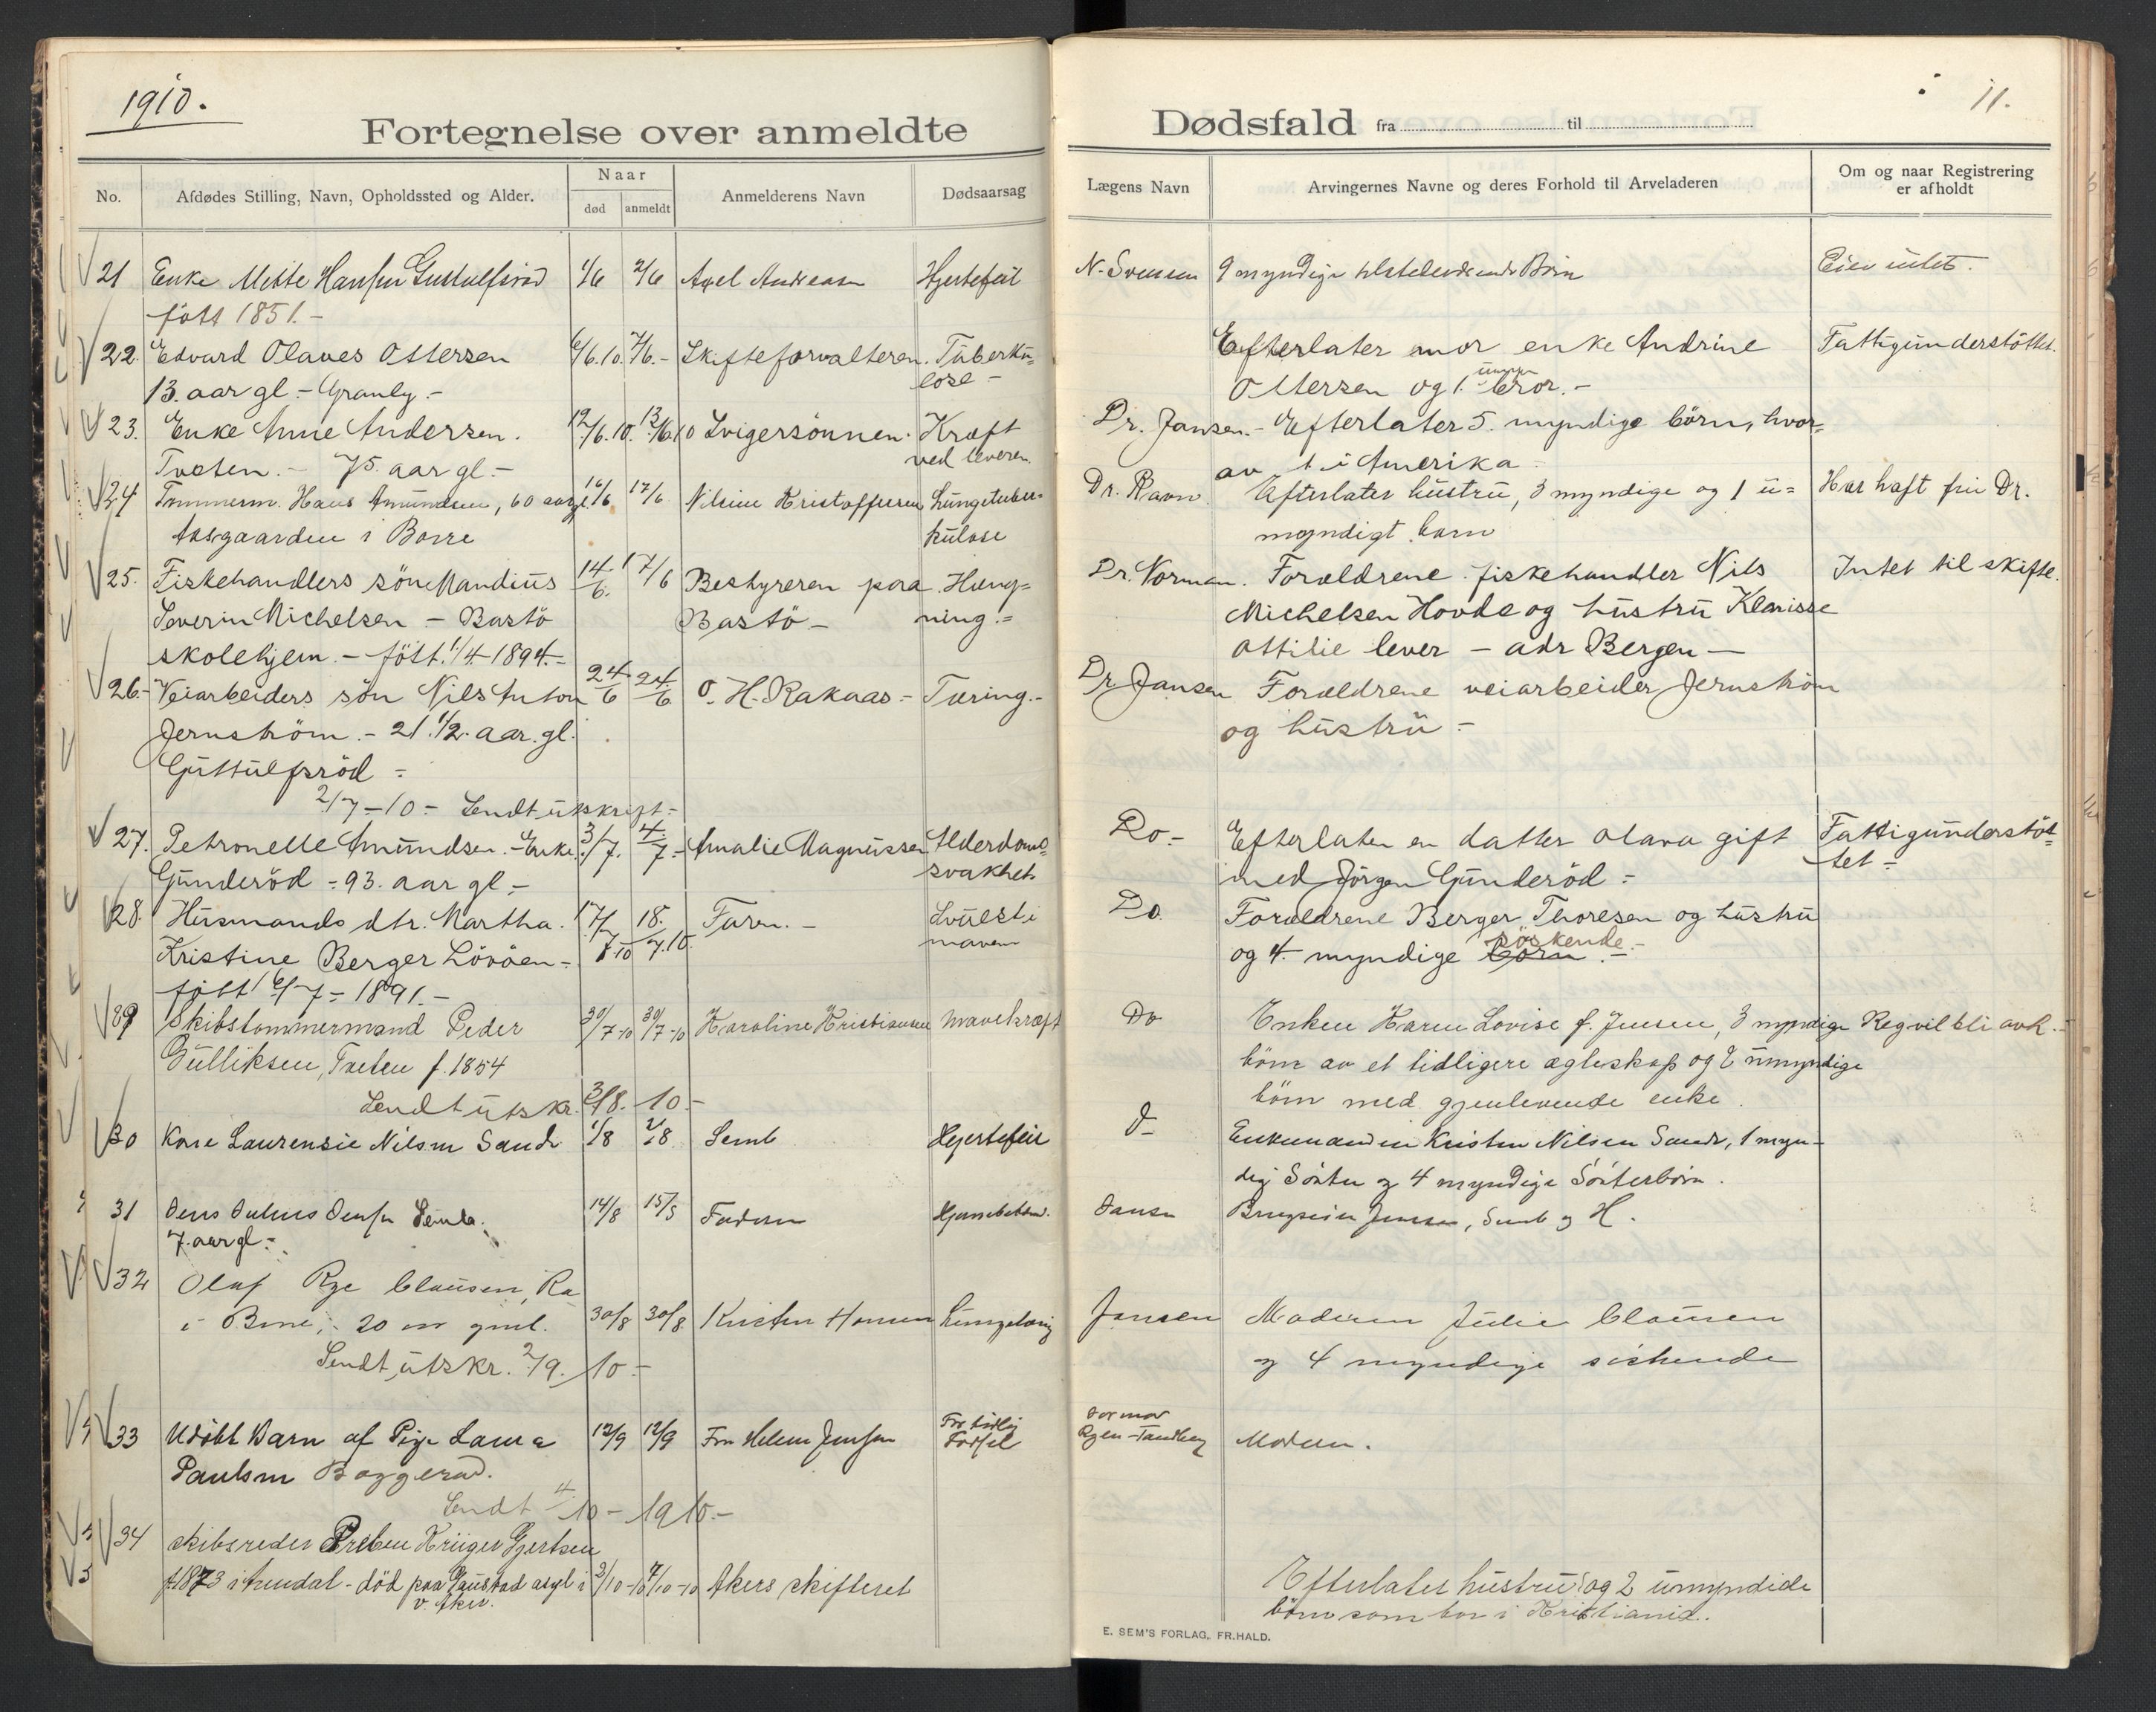 1910.
Fortegnelse over anmeldte
No.
Afdødes Stilling, Navn, Opholdssted og Alder.
Naar
død
anmeldt
Anmelderens Navn
Dødsaarsag
21 Enke Mette Hansen 1/6 2/6 Axel Andreasen Hjertefeil
født 1851.-
22. Edvard Olaves Ottersen 6/6.10. 7/6.- Skifteforvalteren. Tüberkü-
13. aar gl.- Granly.- lose-
23. Enke Anne Andersen. 12/6.10. 13/6.10 Svigersönnen. Kræft
Tveten.- 75. aar gl.- ved leveren.
24 Tømmerm. Hans Amundsen, 60 aar gl. 16/6 17/6 Nilsine Kristoffersen Lungetuber=
Aasgaarden i Borre kulose
25. Fiskehandlers søn Mandius 14/6. 17/6 Bestyreren paa Hæng=
Severin Michelsen - Bastö Bastö- ning.=
skolehjem.- født 1/4 1894.-
26.- Veiarbeiders søn Nils Anton 24/6 24/6 O. H. Rakaas.- Tæring.-
Jernström.- 21 1/2. aar. gl.
Guttulfsröd -
2/7-10- Sendt utskrift-
27. Petronelle Amundsen.- Enke. 3/7. 4/7.- Amalie Magnussen Alderdoms-
Gunderöd - 93. aar gl.- svakhet
28. Husmands dtr. Martha. 17/7-10 18/7.10. Faren.- Svulst i
Kristine Berger Lövöen- maven
født 16/7- 1891.-
29 Skibstømmermand Peder 30/7-10 30/7-10 Karoline Kristiansen Mavekræft
Gulliksen, Tveten f. 1854
Sendt utskr. 3/8.-10-
30 Kone Laurensie Nilsen Sande 1/8 2/8 Semb Hjertefeil
31 Jens Julius Jensen Semb. 14/8 15/8 Faderen
7. aar gl-
32 Olaf Rye Clausen, Ra
i Borre, 20 aar gml. 30/8 30/8 Kristen Hansen
Sendt utskr. 2/9. 10-
33 Udöbt Barn af Pige Laura 12/9 12/9 Fru Helene Jensen For tidlig Fødsel
Paulsen Boggerød.
Sendt 4/10-1910.-
34 Skibsreder Preben Krüger Gjertsen
f. 1873 i Arendal - död paa Gaustad asyl i 2/10-10 7/10-10 Akers skifteret
v. Aker.
11.
Dødsfald fra til
Lægens Navn
Arvingernes Navne og deres Forhold til Arveladeren
Om og naar Registrering
er afholdt
N. Svensen 9 myndige Börn Eier intet.
Efterlater mor enke Andrine Fattigunderstöttet.
Ottersen og 1. umyn bror.-
Dr. Jansen.- Efterlater 5. myndige börn, hvor=
av 1 i Amerika-
Dr. Ravn. Efterlater hustru, 3 myndige og 1 u= Har haft fri Dr.
myndigt barn
Dr. Norman. Forældrene fiskehandler Nils Intet til skifte.
Michelsen Hovde og hustru Klarisse
Ottilie lever - adr Bergen-
Dr. Jansen Forældrene veiarbeider Jernström
og hustru-
Do.- Efterlater en datter Olava gift Fattigunderstöt=
med Jörgen Gunderöd- tet-
Do. Forældrene Berger Thoresen og hustru
og 4. myndige börn søskende.-
Do Enken Karen Lovise f. Jensen, 3 myndige Reg vil bli avh.-
börn av et tidligere ægteskap og 2 umyndige
börn med gjenlevende enke.
D- Enkemanden Kristen Nilsen Sande, 1 myn-
dig Söster og 4 myndige Sösterbörn.
Jansen Jensen, Semb og H.
Jansen Moderen Julie Clausen
og 4 myndige söskende
Jormor
Moderen.
Efterlater hustru og 2 umyndide
börn som bor i Kristiania.
E. SEM'S FORLAG, FR.HALD.